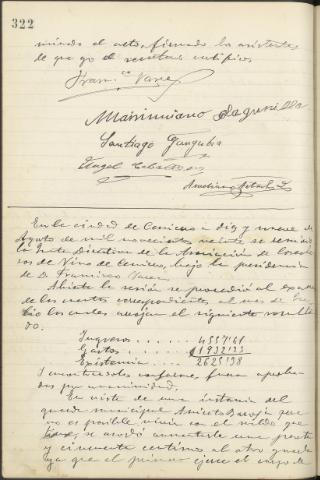 322
minado el acto, firmando los asistentes
de que yo el secretario certifico.
Franco Navas
Maximiano Sagunilla
Santiago Junguba
Angel Ceballos
En la ciudad de Cenicero a diez y nueve de
Agosto de mil novecientos veinte se reunió
la Junta Directiva de la Asociación de Coseche
ros de Vino de Cenicero, bajo la presidencia
de D. Francisco
Abierta la sesión se procedió al examen
de las cuentas correspondientes al mes de Ju
lio las cuales arrojan el siguiente resulta
do.
Ingresos . . . . . . 4557'61
Gastos . . . . . . 1932'33
Existencia . . . . 2625'28
Encontrándolas conforme, fueron aproba
das por unanimidad.
En vista de una instancia del
guarda municipal Aniceto que
no es posible vivir con el sueldo que
tiene, se acordó aumentarle una peseta
y cincuenta céntimos al otro guarda
ya que el primero ejerce el cargo de